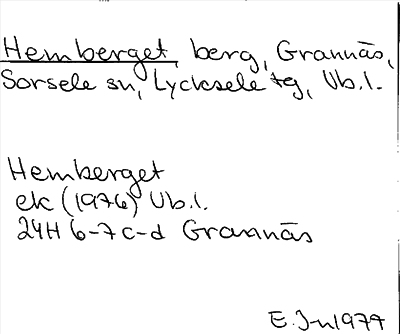 Hemberget, berg, Grannäs,
Sorsele sn, Lycksele tg, Vb.l.
Hemberget
ek (1976) Vb.l.
24H 6-7 c-d Grannäs
E. J-n 1977